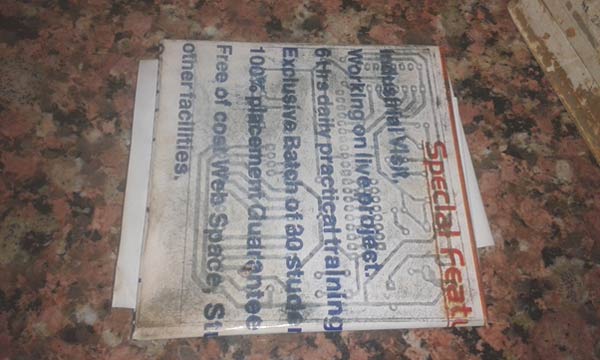 Special Featu
Industrial Visit,
Working on live project.
6-Hrs daily practical training
Exclusive Batch of 30 studen
100% placement Guarantee
Free of cost Web Space, Stu
other facilities.